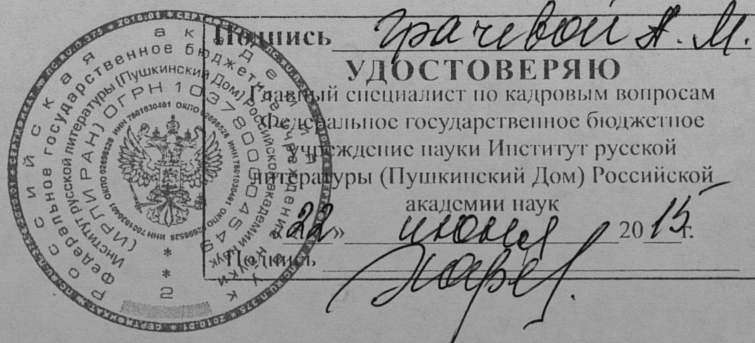 Подпись Грачевой А. М.
УДОСТОВЕРЯЮ
Главный специалист по кадровым вопросам
Федеральное государственное бюджетное
учреждение науки Институт русской
литературы (Пушкинский Дом) Российской
академии наук
«22» июня 2015г.
Подпись
Российская академия наук
Федеральное государственное бюджетное учреждение науки
Институт русской литературы (Пушкинский Дом) Российской академии наук
(ИРЛИ РАН) ОГРН 1037800504549
ИНН 7801030401 ОКПО 02698528
* *
2